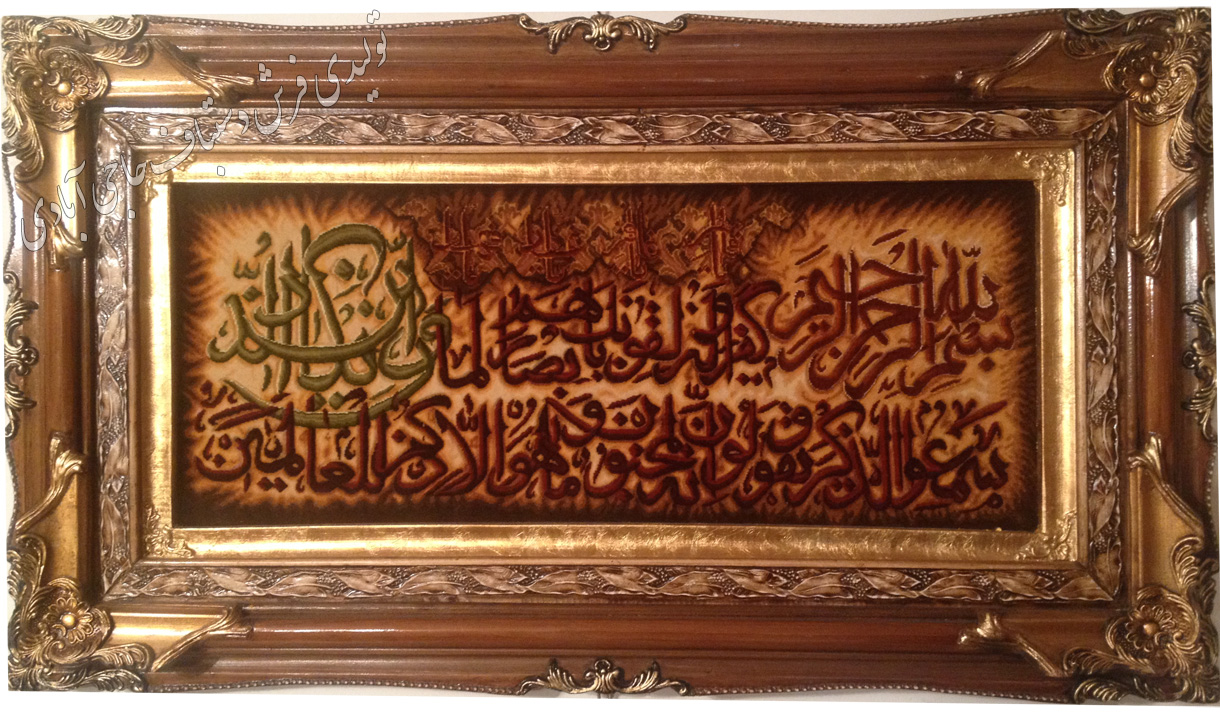 تولیدی فرش دستباف حاجی آبادی
بسم الله الرحمن الرحیم
وان یکاد الذین
کفروا لیزلقونک بابصارهم لما
سمعوا الذکر و یقولون انه لمجنون و ما هو الا ذکر للعالمین